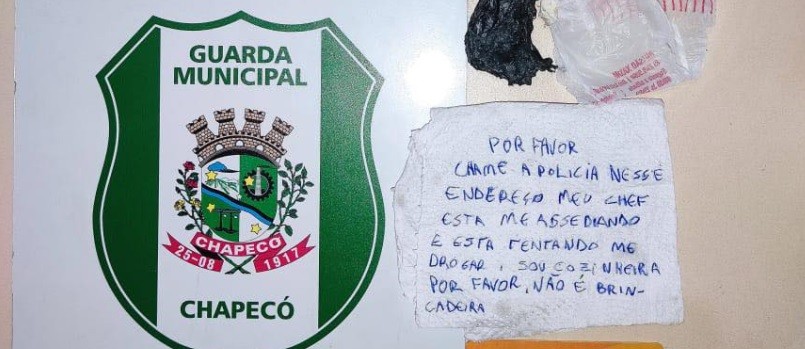 GUARDA
MUNICIPAL
CHAPECÓ
25-08
1917
CHAPECÓ
POR FAVOR
CHAME A POLICIA NESSE
ENDEREÇO MEU CHEF
ESTA ME ASSEDIANDO
E ESTA TENTANDO ME
DROGAR, SOU COZINHEIRA
POR FAVOR, NÃO É BRIN-
CADEIRA